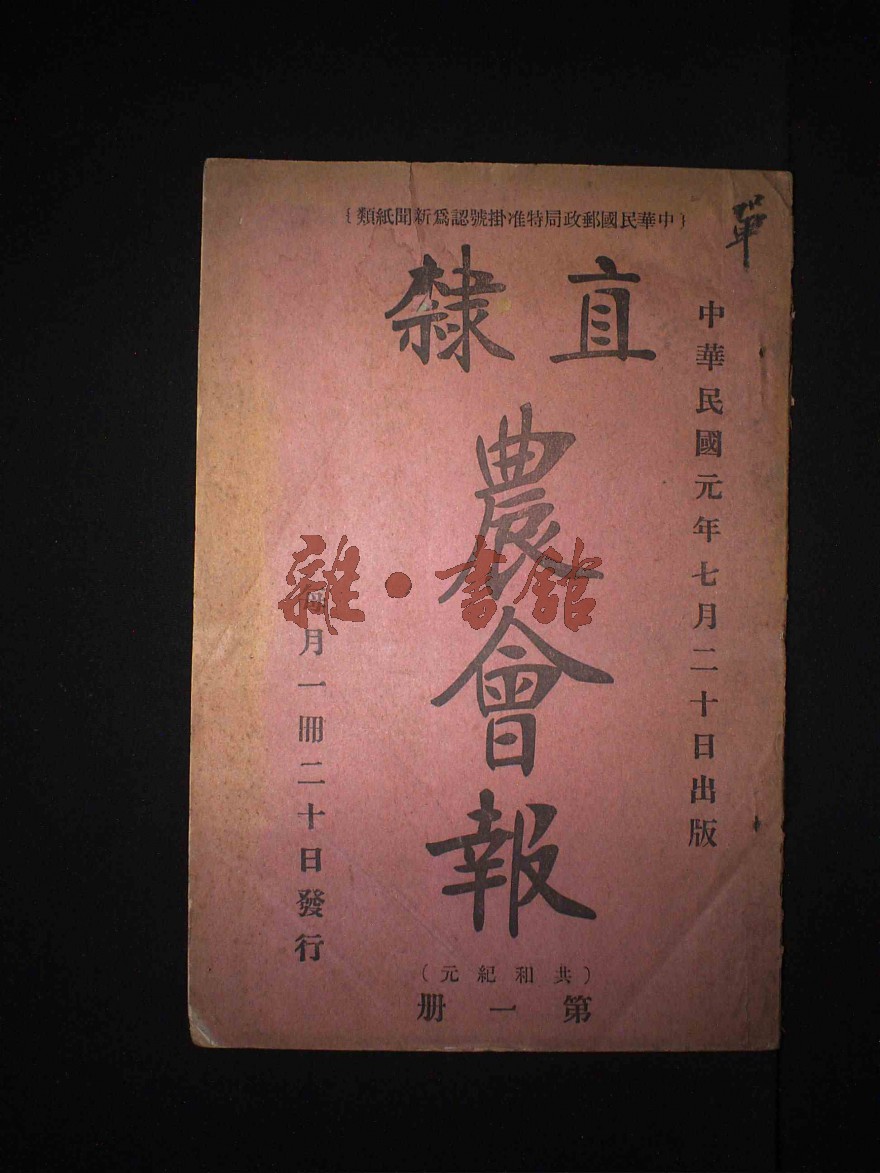 中華民國郵政局特准掛號認爲新聞紙類
單
中華民國元年七月二十日出版
直隸
農會報
(共和紀元)
第一册
每月一冊二十日發行
雜·書館